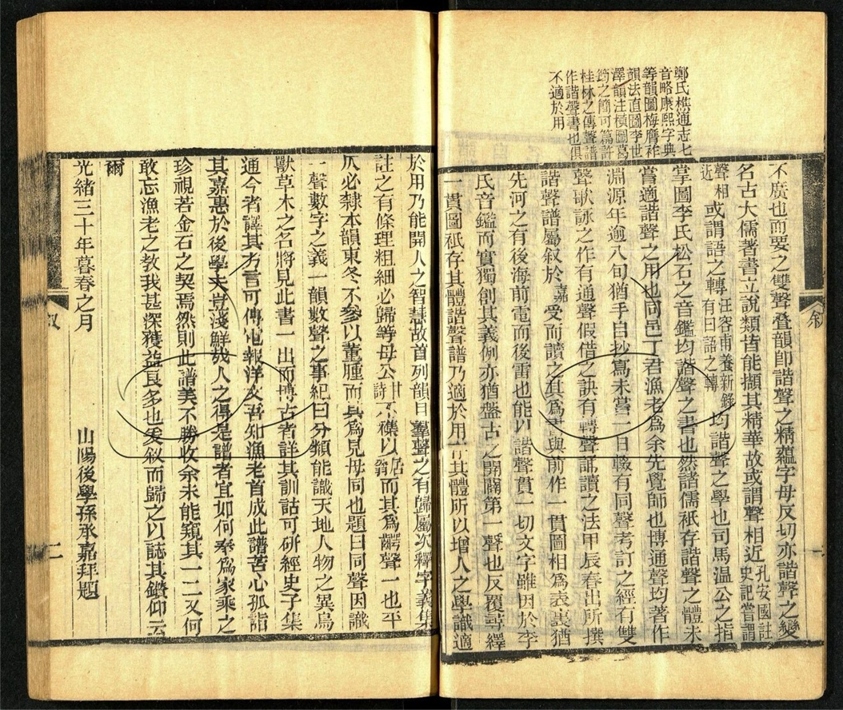 鄭氏樵通志七
音略康熙字典
等韻圖梅膺祚
韻法直圖李世
澤韻法橫圖葛
筠之簡可篇許
桂林之傳聲譜
作諧聲書也俱
不適於用
不廣也而要之雙聲叠韻卽諧聲之精蘊字母反切亦諧聲之變
名古大儒著書立說類皆能擷其精華故或謂聲相近孔安國註史記嘗謂
聲相近或謂語之轉汪容甫養新錄有曰語之轉均諧聲之學也司馬温公之指
掌圖李氏松石之音鑑均諧聲之書也然諸儒祇存諧聲之體未
嘗適諧聲之用也同邑丁君漁老爲余先覺師也博通聲均著作
淵源年逾八旬猶手自抄寫未嘗一日輟有同聲考訂之經有雙
聲歌詠之作有通聲假借之訣有轉聲誦讀之法甲辰春出所撰
諧聲譜屬叙於嘉受而讀之其爲書與前作一貫圖相爲表裏猶
先河之有後海前電而後雷也能以諧聲貫一切文字雖因於李
氏音鑑而實獨創其義例亦猶盤古之開闢第一聲也反覆尋繹
一貫圖祇存其體諧聲譜乃適於用存其體所以增人之學識適
於用乃能開人之智慧故首列韻目羣聲之有歸屬次釋字義集
註之有條理粗細必歸等母公詩不襍以居翁而其爲齶聲一也平
仄必隸本韻東冬不參以董腫而其爲見母同也題曰同聲因識
一聲數字之義一韻數聲之事紀曰分類能識天地人物之異鳥
獸草木之名將見此書一出而博古者詳其訓詁可硏經史子集
通今者譯其方言可傳電報洋文吾知漁老首成此譜苦心孤詣
其嘉惠於後學夫豈淺鮮哉人之得是譜者宜如何奉爲家乘之
珍視若金石之契焉然則此譜美不勝收余未能窺其一二又何
敢忘漁老之敎我甚深穫益良多也爰叙而歸之以誌其鑽仰云
爾
光緒三十年暮春之月
山陽後學孫承嘉拜題
叙
二